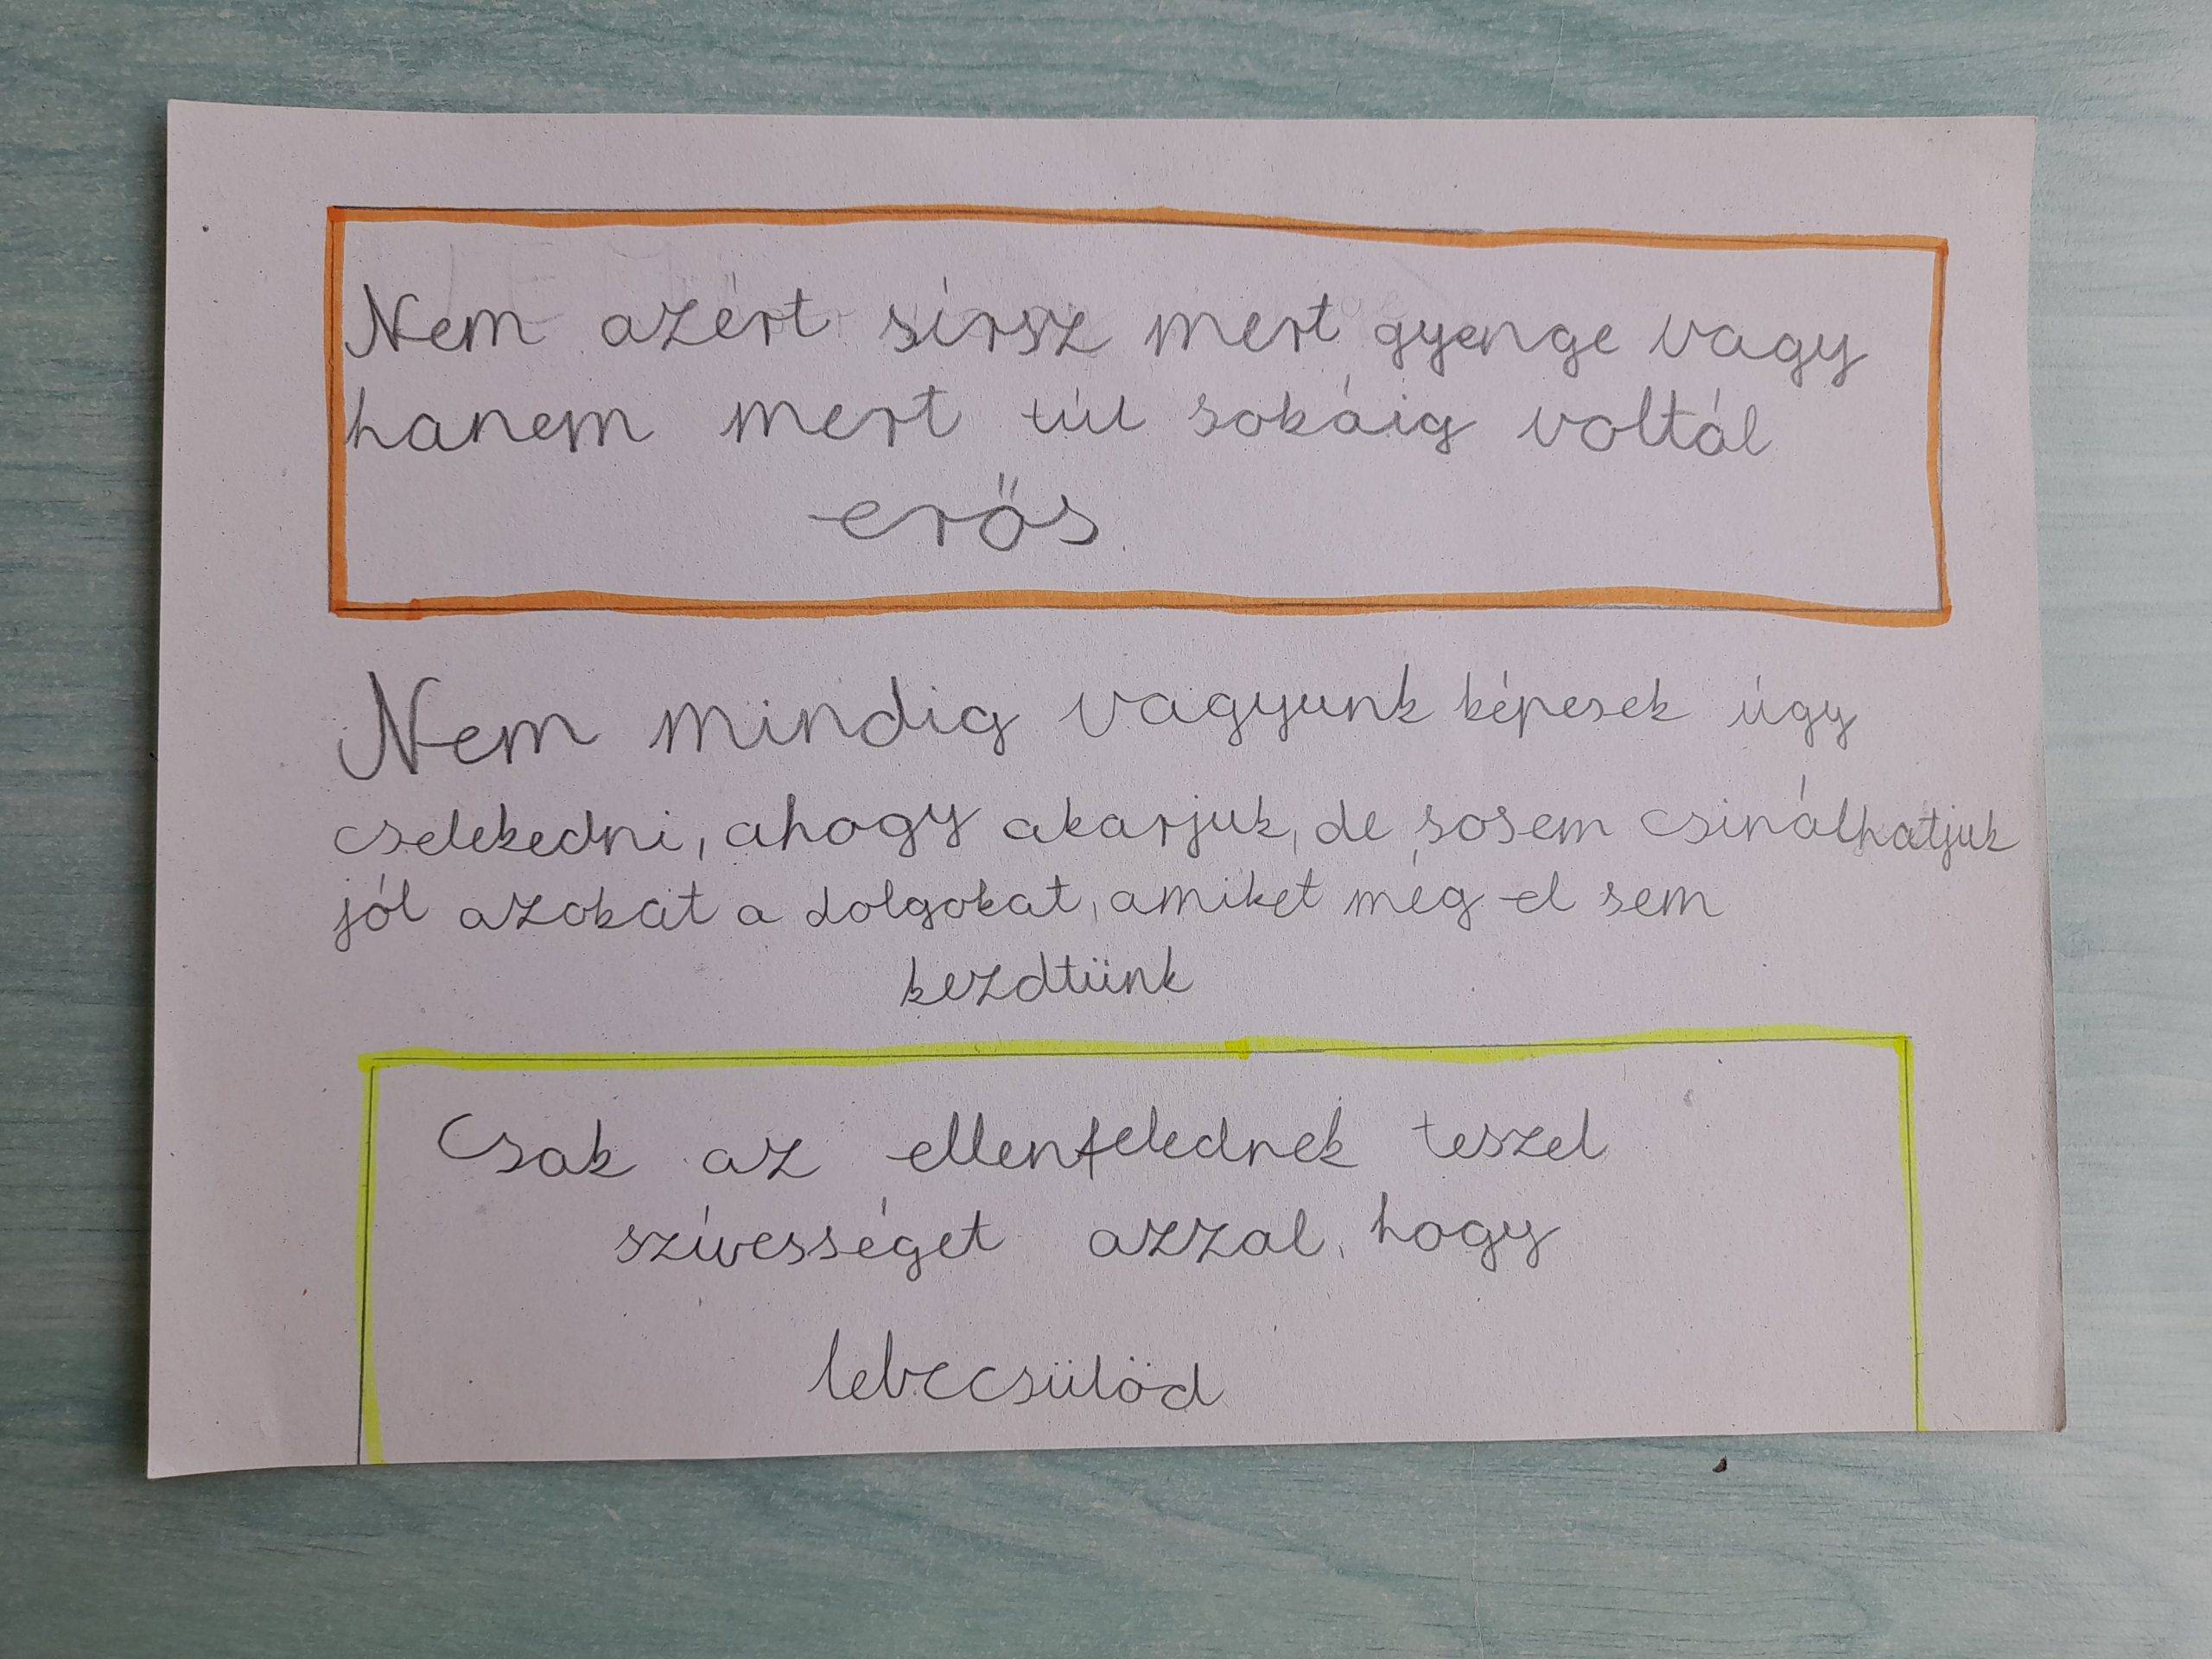 Nem azért sírsz mert gyenge vagy
hanem mert túl sokáig voltál
erős
Nem mindig vagyunk képesek úgy
cselekedni, ahogy akarjuk, de sosem csinálhatjuk
jól azokat a dolgokat, amiket még el sem
kezdtünk
Csak az ellenfelednek teszel
szívességet azzal, hogy
lebecsülöd